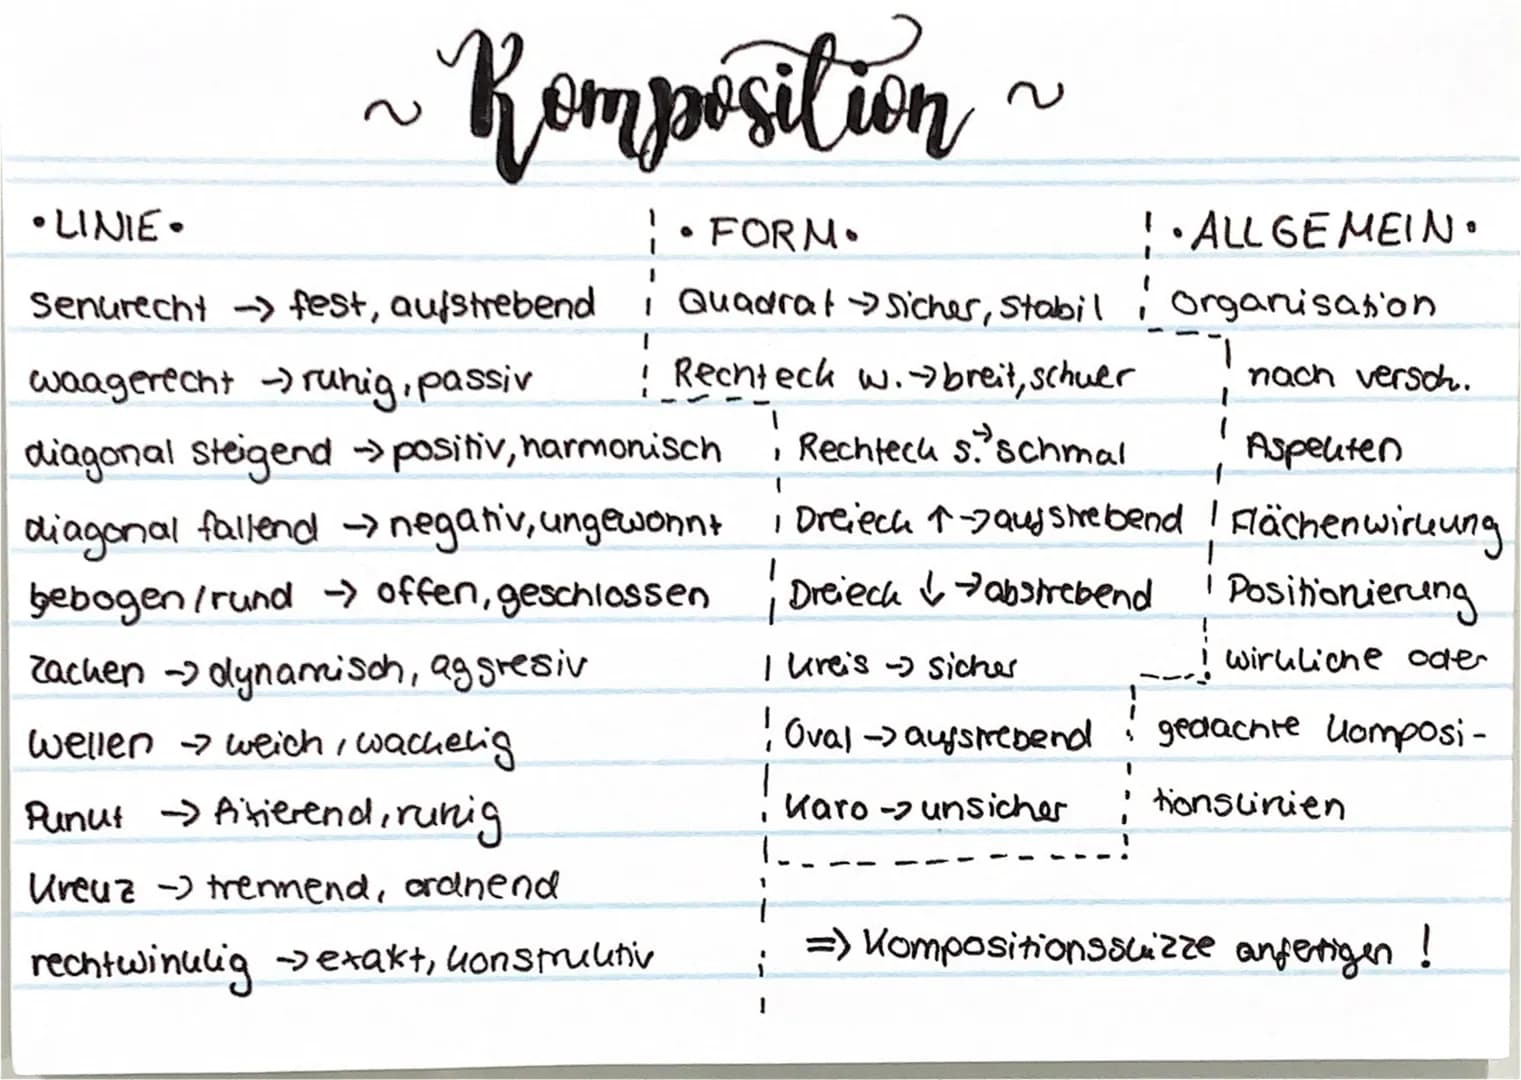 ~ Komposition ~
• LINIE •
senkrecht → fest, aufstrebend
waagerecht → ruhig, passiv
diagonal steigend → positiv, harmonisch
diagonal fallend → negativ, ungewohnt
gebogen/rund → offen, geschlossen
zacken → dynamisch, aggresiv
wellen → weich, wackelig
Punkt → fixierend, ruhig
Kreuz → trennend, ordnend
rechtwinklig → exakt, konstruktiv
• FORM •
Quadrat → sicher, stabil
Rechteck w. → breit, schwer
Rechteck s. → schmal
Dreieck ↑ → aufstrebend
Dreieck ↓ → abstrebend
Kreis → sicher
Oval → aufstrebend
Karo → unsicher
• ALLGEMEIN •
Organisation
nach versch.
Aspekten
Flächenwirkung
Positionierung
wirkliche oder
gedachte Komposi-
tionslinien
=> Kompositionsskizze anfertigen !